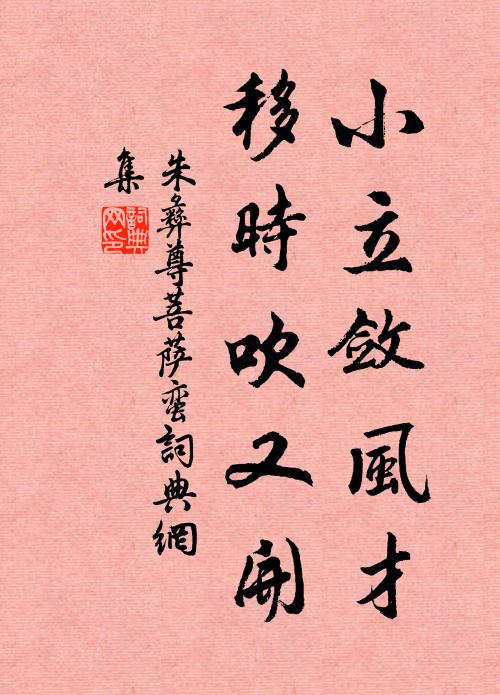 小立斂風才
移時吹又開
朱彝尊菩薩蠻詞典網
集
詞典
网印